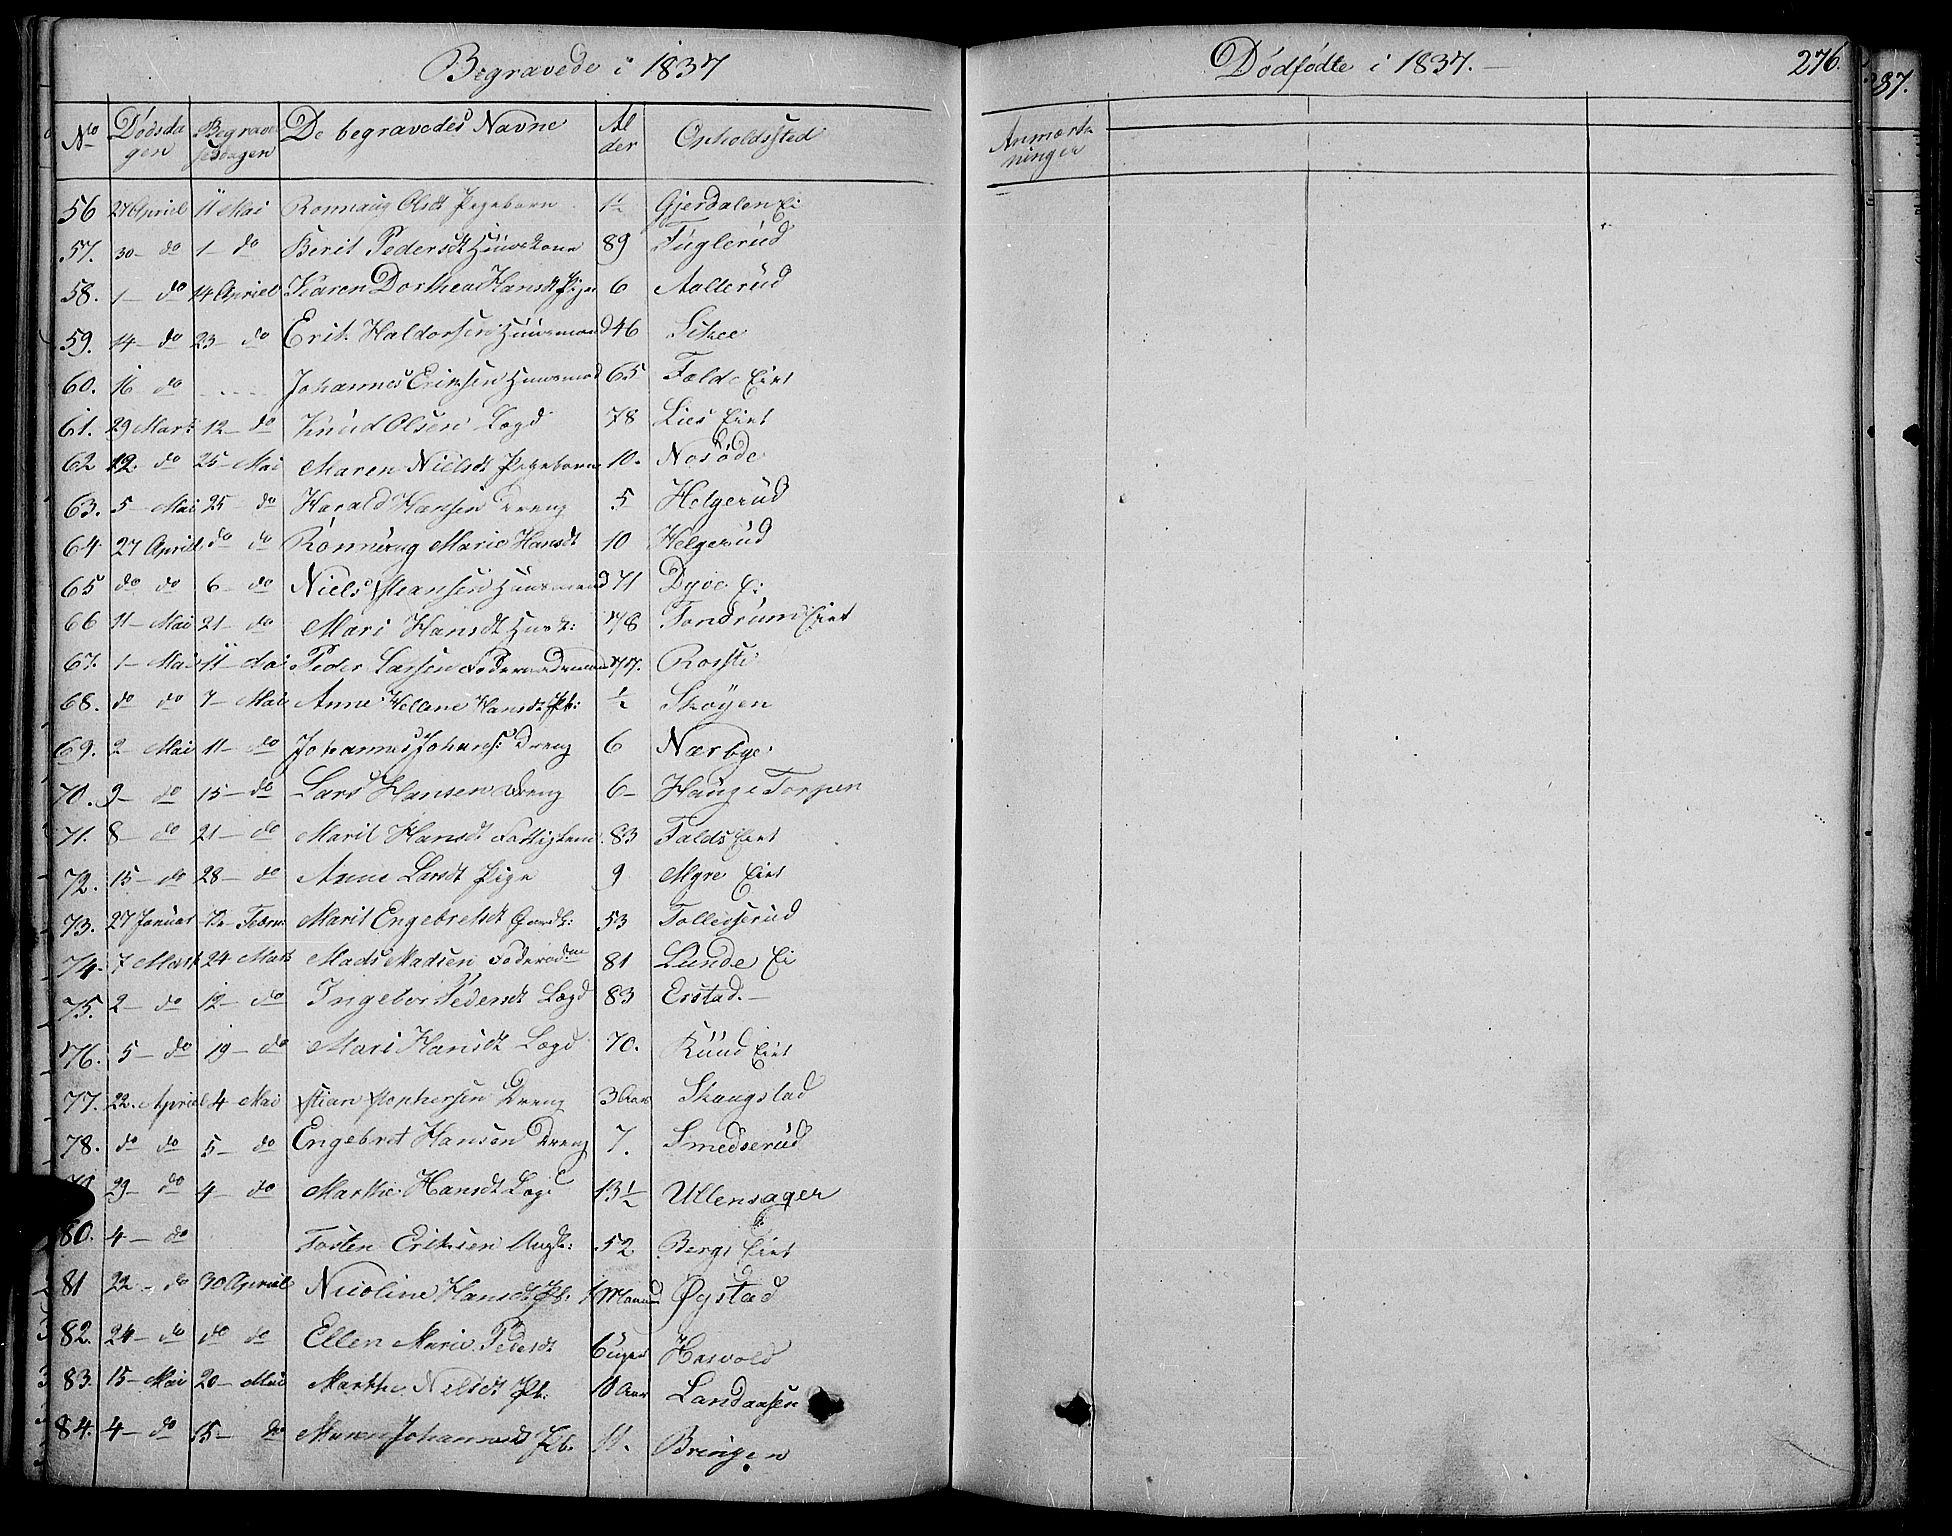 Begravede i 1837
No Dødsdagen Begravelsesdagen De begravedes Navne Alder Opholdssted
56 27 Apriel 11 Mai Ronnaug Olsdt Pigebarn 1½ Gjerdalen Ei
57. 30 - do 1 - do Berit Pedersdt Huuskone 89 Fuglerud
58. 1 - do 14 Apriel Karen Dorthea Hansdt Pige 6 Aallerud
59. 14 - do 23 - do Erik Haldorsen Huusmand 46
60. 16 do - - - - Johannes Eriksen Huusmd 65 Folde Eiet
61. 29 Mart 12 - do Knud Olsen Lægd 78 Lies Eiet
62 12. do 25 - Mai Maren Nielsdt Pigebarn 10. Nosøde
63. 5 - Mai 25 - do Harald Hansen Dreng 5 Helgerud
64. 27 Apriel do do Rønnaug Marie Hansdt 10 Helgerud
65 do do 6 - do Niels Hansen Huusmand 71 Dyve Ei
66 11 - Mai 21 - do Mari Hansdt Husk: 78 Tandrum Eiet
67. 1 - Mai 11 - Mai Peder Larsen Føderaadsmand 77. Rosste
68. do do 7 - Mai Anne Hellene Hansdt Pb: ½ Skøyen
69. 2 - Mai 11 - do Johannes Johans: Dreng 6 Nærbye
70. 9 - do 15 - do Lars Hansen Dreng 6 - Hauge Torpen
71. 8 - do 21 - do Marit Hansdt Fattiglem 83 Falds Eiet
72. 15 - do 28 - do Anne Larsdt Pige 9 Myre Eiet
73. 27 Januar 12 - Febru Marit Engebretsdt Gaardk: 53 Tolleivserud
74. 7 Mart 24 Mart Mads Madsen Føderaadm 81 Lunde Ei
75. 2 - do 12 - do Ingebor Pedersdt Lægd 83 Erstad. -
76. 5 - do 19 - do Mari Hansdt Lægd 70. Ruud Eiet
77. 22. Apriel 4 Mai Stian Stophersen Dreng 3 Aar Skaugstad
78. do do 5 - do Engebret Hansen Dreng 7. Smedserud
79 23 - do 4 - do Marthe Hansdt Lægd 13½ Ullensager
80. 4 - do Tosten Eriksen Ungk: 52 Bergs Eiet
81 22 - do 30 Apriel Nicoline Hansdt Pb. 1 Maaned Øystad
82. 24 - do do do Ellen Marie Pedersdt 6 Uger Hasvold
83. 15 - Mai 20 - Mai Marthe Nielsdt Pb. 10 Aar Landaasen
84. 4 - do 15 - do Maren Johannesdt Pb. 11. Bringen
Dødfødte i 1837. -
276.
287.
Anmærkninger